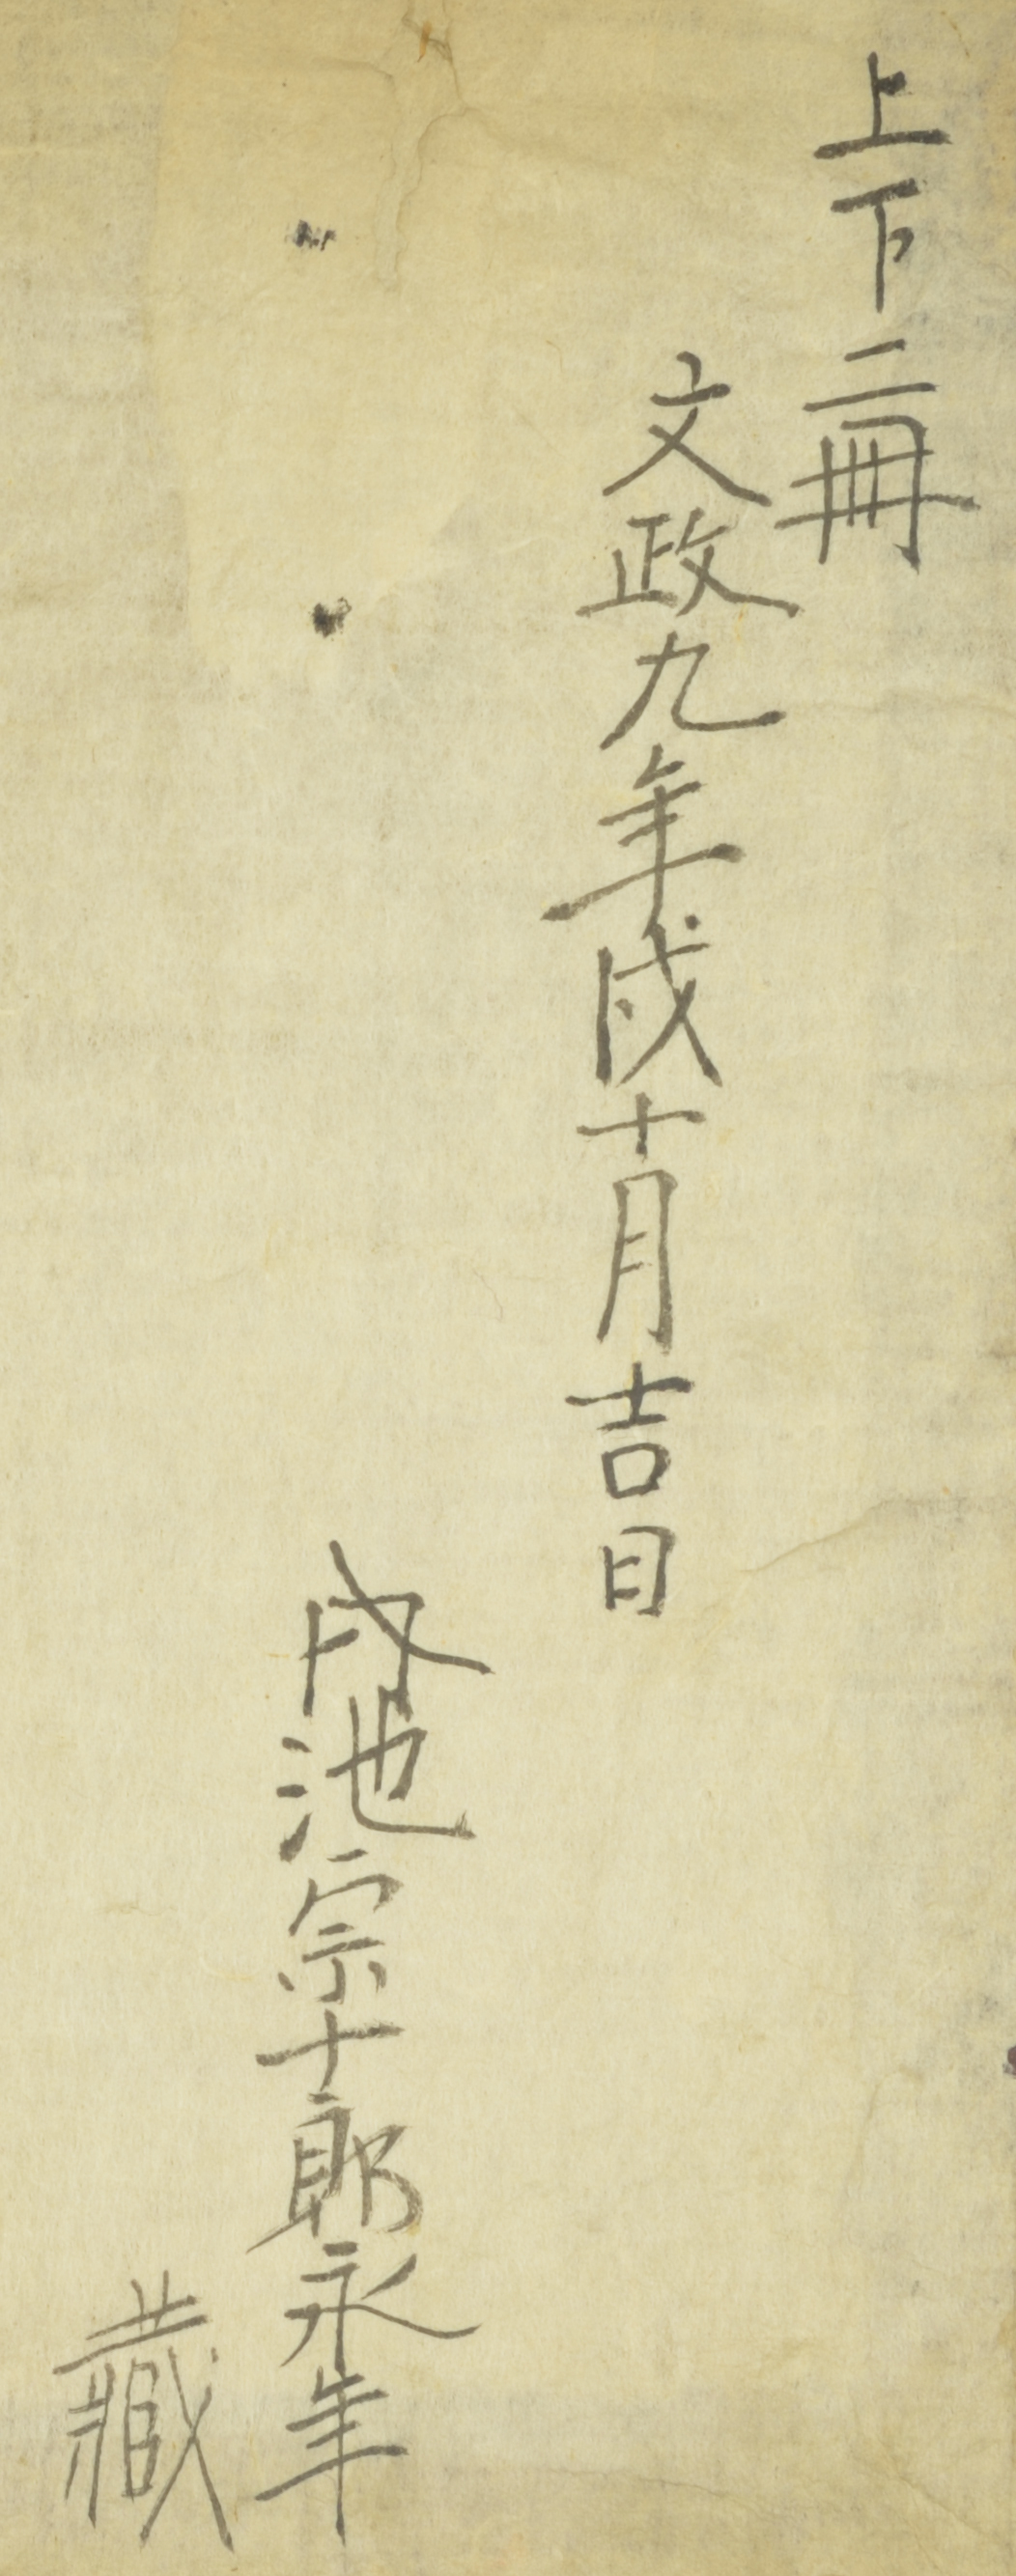 上下二冊
文政九年戌十月吉日
池宗十郎永年
藏